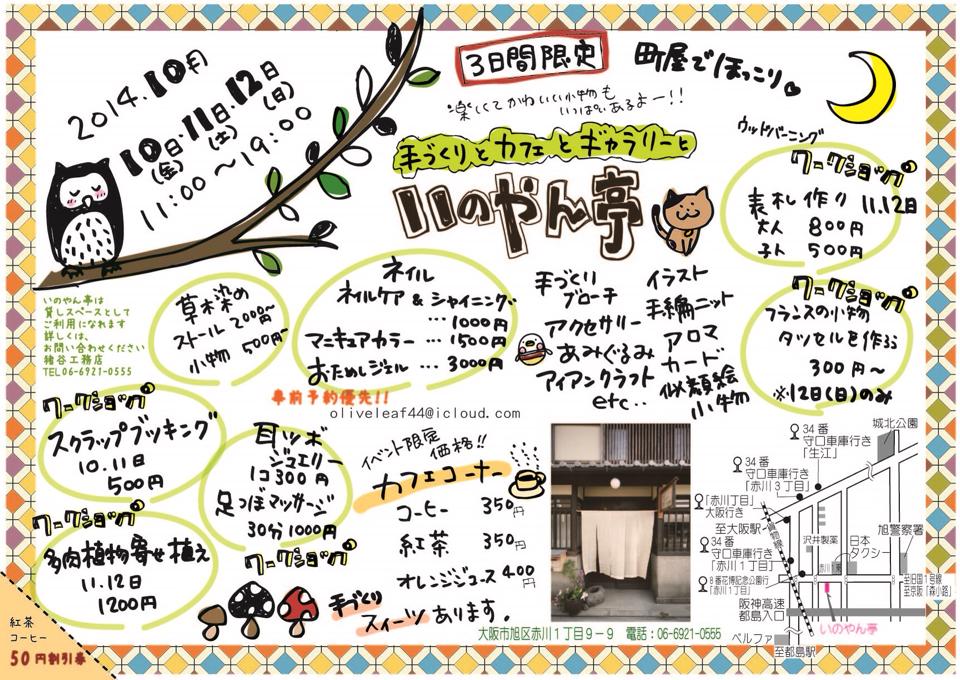 2014.10月
10日(金)・11日(土)・12日(日)
11:00～19:00
3日間限定
町屋でほっこり
楽しくてかわいい小物も
いっぱいあるよー!!
手づくりとカフェとギャラリーと
いのやん亭
ウッドバーニング
ワークショップ
表札作り 11.12日
大人 800円
子人 500円
いのやん亭は
貸しスペースとして
ご利用になれます
詳しくは、
お問い合わせください
猪谷工務店
TEL06-6921-0555
草木染め
ストール 2000円～
小物 500円～
ネイル
ネイルケア & シャイニング
… 1000円
マニキュアカラー … 1500円
おためしジェル … 3000円
事前予約優先!!
oliveleaf44@icloud.com
手づくり
ブローチ
アクセサリー
あみぐるみ
アイアンクラフト
etc..
イラスト
手編ニット
アロマ
カード
似顔絵
小物
ワークショップ
フランスの小物
タッセルを作ろう
300円～
※12日(日)のみ
ワークショップ
スクラップブッキング
10.11日
500円
耳ツボ
ジュエリー
1コ300円
足つぼマッサージ
30分1000円
ワークショップ
ワークショップ
多肉植物寄せ植え
11.12日
1200円
イベント限定
価格!!
カフェコーナー
コーヒー 350円
紅茶 350円
オレンジジュース 400円
手づくり
スイーツあります。
紅茶
コーヒー
50円割引券
大阪市旭区赤川1丁目9－9 電話:06-6921-0555
城北公園
34番
守口車庫行き
「生江」
34番
守口車庫行き
「赤川3丁目」
「赤川1丁目」
大阪行き
至大阪駅
貨物線
34番
守口車庫行き
「赤川1丁目」
沢井製薬
日本
タクシー
旭警察署
8番花博記念公園行
「赤川1丁目」
至旧国1号線
至京阪「森小路」
阪神高速
都島入口
いのやん亭
ベルファ
至都島駅